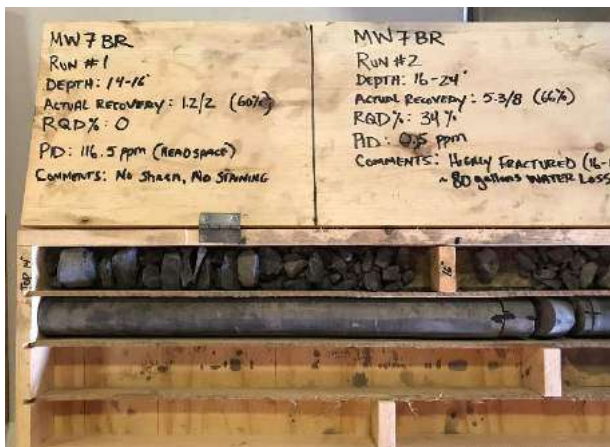 MW7BR
RUN #1
DEPTH: 14-16'
ACTUAL RECOVERY: 1.2/2 (60%)
RQD%: 0
PID: 116.5 ppm (HEADSPACE)
COMMENTS: No Sheen, No STAINING
MW7BR
RUN #2
DEPTH: 16-24'
ACTUAL RECOVERY: 5.3/8 (66%)
RQD%: 34%
PID: 0.5 ppm
COMMENTS: HIGHLY FRACTURED (16-1
~ 80 gallons WATER LOSS
TOP 14'
16'